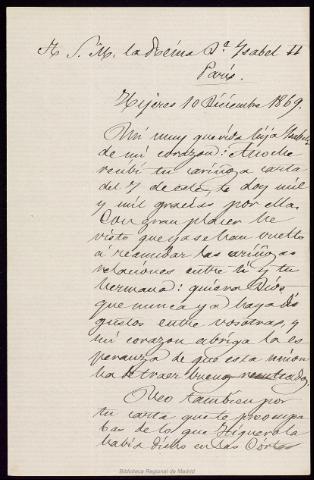 A S. M. la Reina Dª Isabel II
París.
Hyeres 10 Diciembre 1869.
Mi muy querida hija Isabel
de mi corazon: Anoche
recibí tu cariñoza carta
del 7 de este, te doy mil
y mil gracias por ella.
Con gran placer he
visto que ya se han vuelto
á reanudar las cariñozas
relaciones entre tí y tu
hermana: quiera Dios
que nunca ya haya dis
gustos entre vosotras, y
mi corazon abriga la es
peranza de que esta union
ha de traer buenos resultados.
Veo tambien por
tu carta que te
de lo que Figuerola
habia dicho en las Córtes
Biblioteca Regional de Madrid